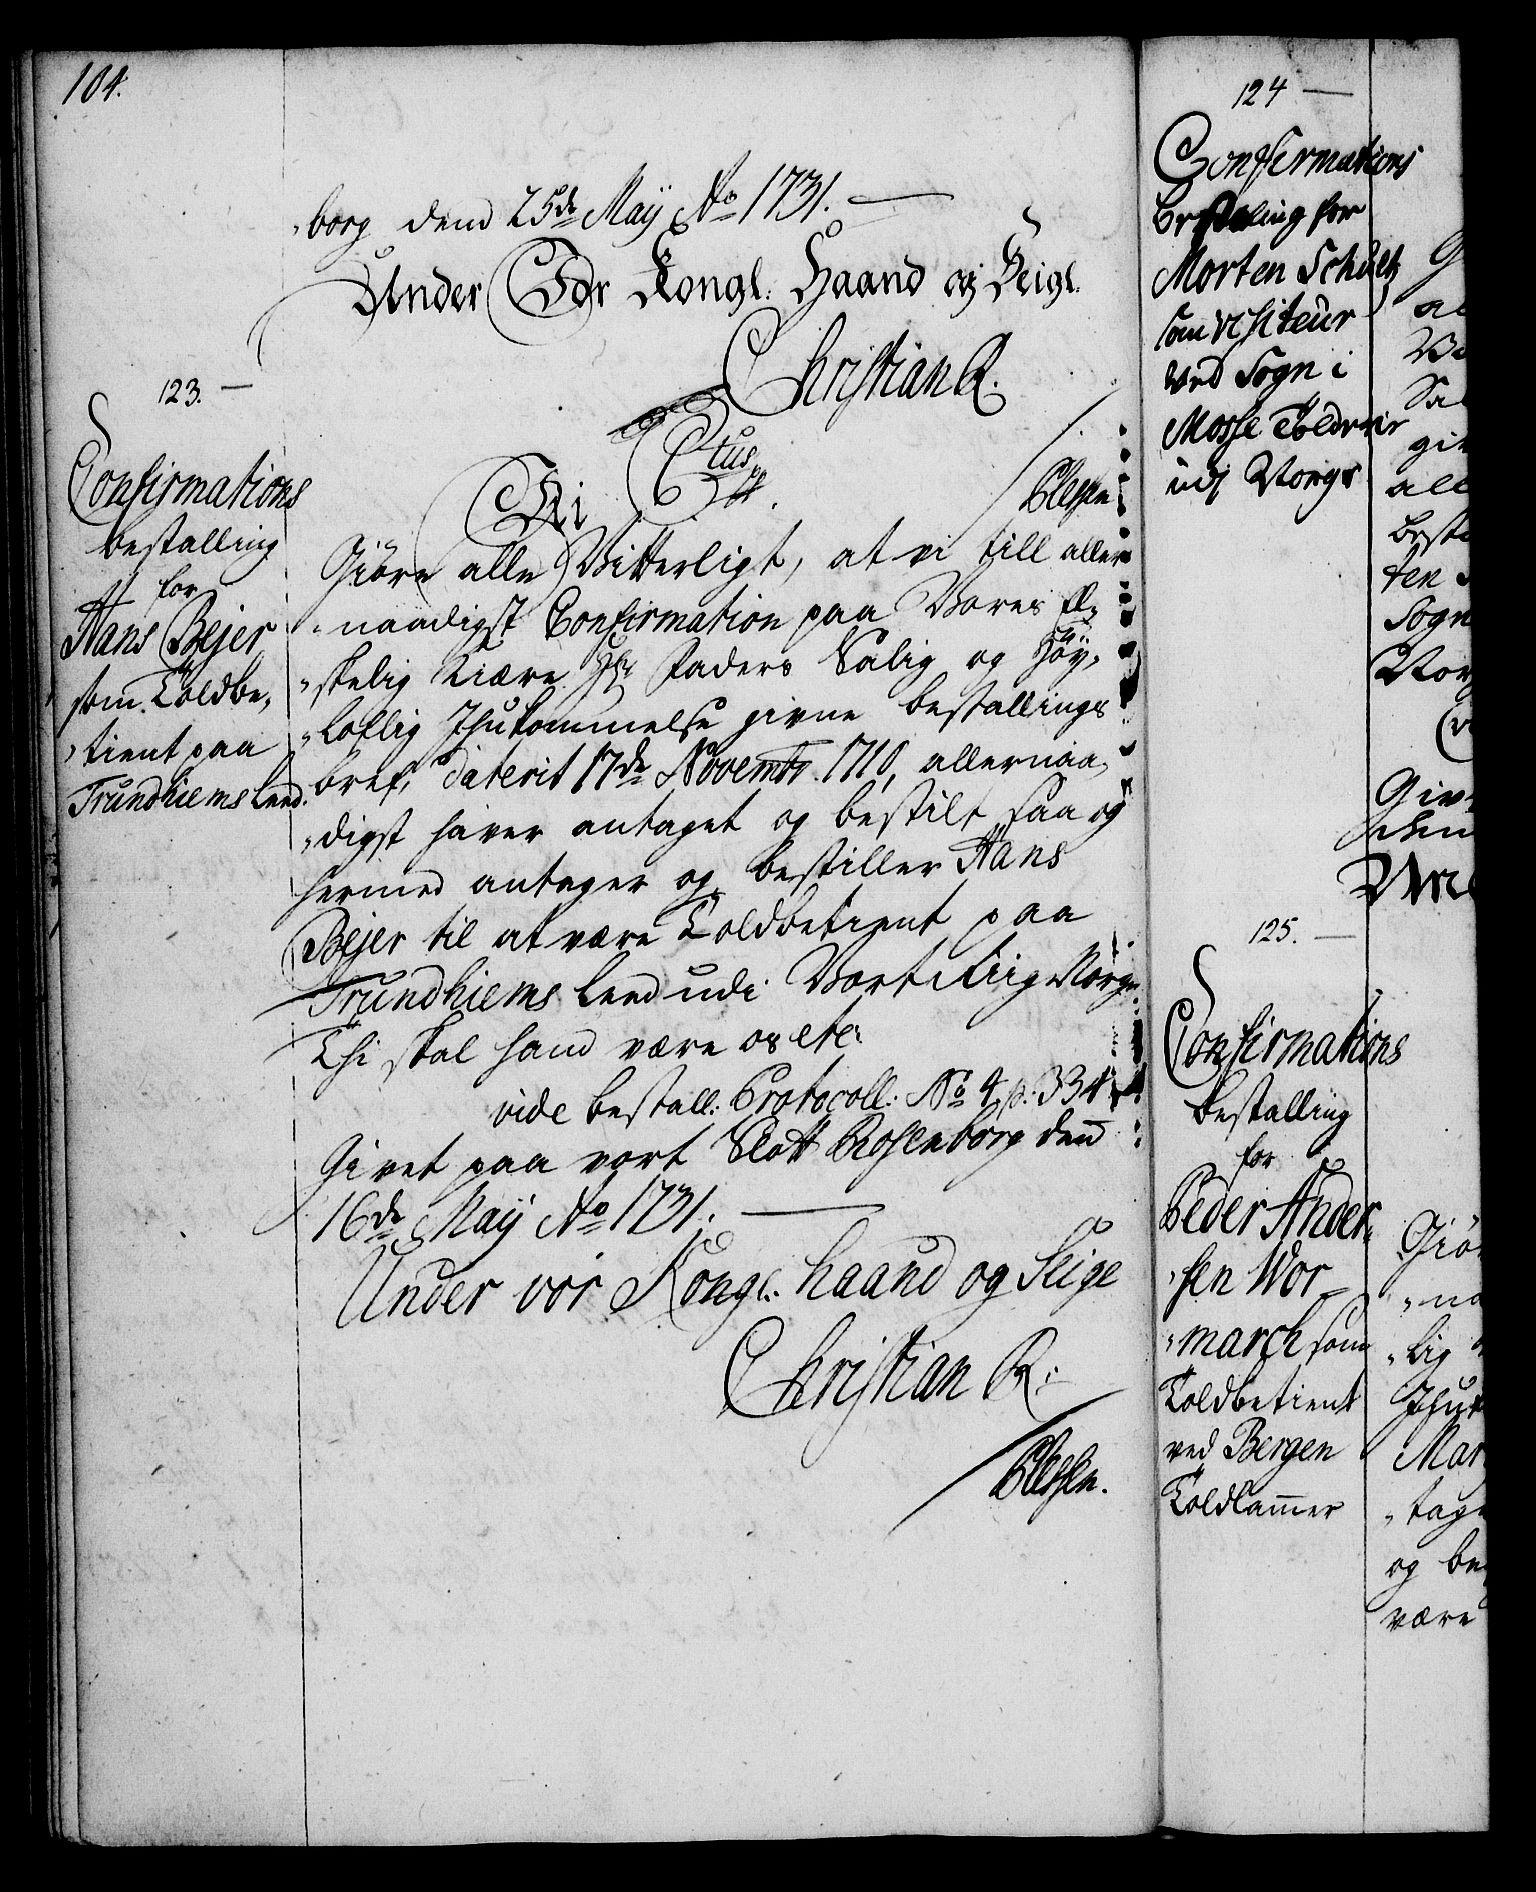 104.
borg dend 25de Maij Ao 1731.
Under Vor Kongl: Haand og Seigl.
Christian R.
Plessen
123.
Confirmations
bestalling
for
Hans Bejer
som Toldbe,
"tient paa
Trundhiems Leed.
Ctus
Vi
Giöre alle Vitterligt, at vi till aller
"naadigst Confirmation paa Vores El,
"skelig Kiære Hr Faders Salig og Høy,
"loflig Ihukommelse givne bestallings
bref, daterit 17de Novembr. 1710, allernaa,
"digst haver antaget og bestilt, saa og
hermed antager og bestiller Hans
Bejer til at være Toldbetient paa
Trundhiems Leed udi Vort Riig Norge
Thi skal hand være os etc:
vide bestall: Protocoll: No 4 p: 334
Givet paa vort Slott Rosenborg den
16de Maij Ao 1731.
Under vor Kongl: haand og Seigl
Christian R:
Plessen.
124
Confirmations
bestalling for
Morten Schultz
som visiteur
ved Sogn i
Mosse Toldrier
udj Norge
125.
Confirmations
bestalling
for
Peder Ander,
"sen Wor
"march som
Toldbetient
ved Bergen
Toldkammer
all
beste
ten
Sogn
Giv
Giö
"na
"lig
Ihuk
Mar
"tage
og be
være